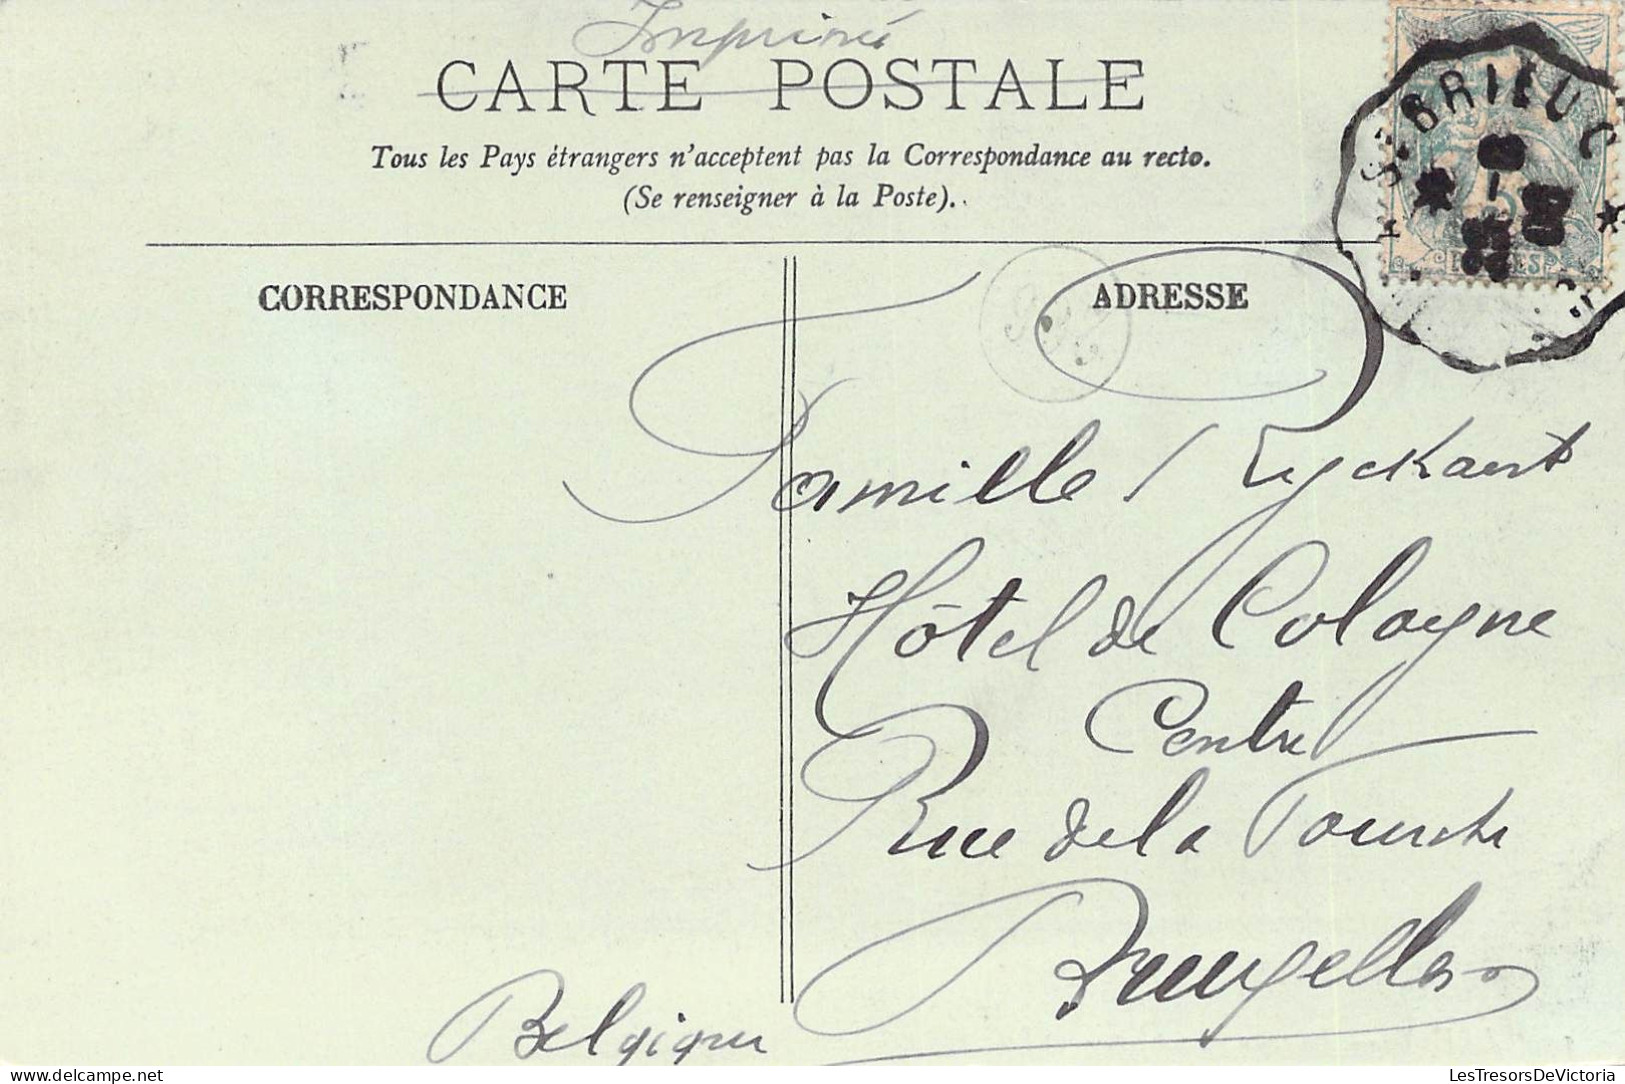 Imprimé
CARTE POSTALE
Tous les Pays étrangers n'acceptent pas la Correspondance au recto.
(Se renseigner à la Poste).
CORRESPONDANCE
ADRESSE
ST BRIEUC
5
POSTES
Famille Ryckaert
Hôtel de Cologne
Centre
Rue de la Fourche
Bruxelles
Belgique
LesTresorsDeVictoria